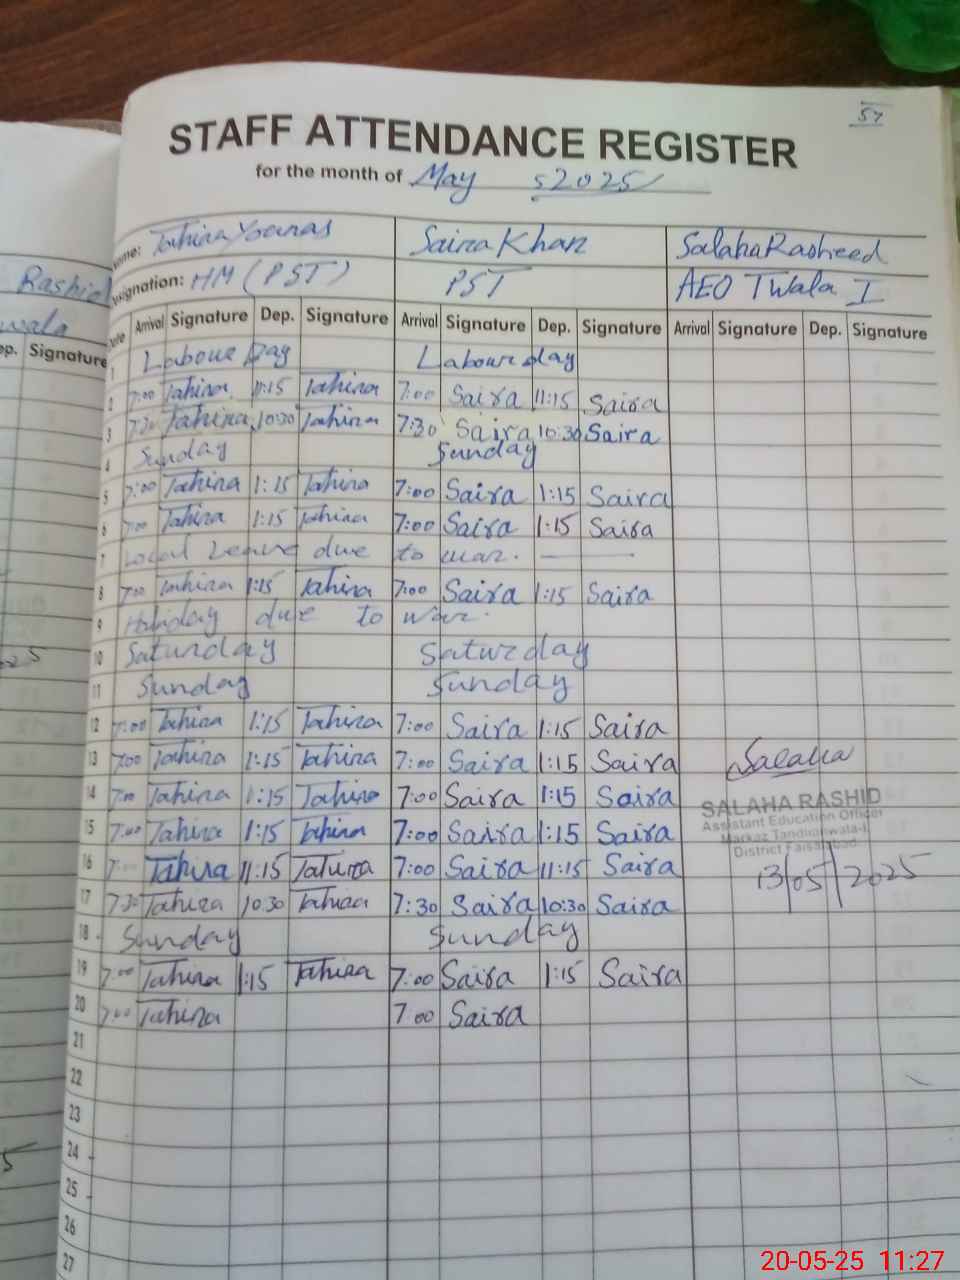 57
STAFF ATTENDANCE REGISTER
for the month of May 2025
Name: Tahira Younas Saira Khan Salaha Rasheed
Designation: HM (PST) PST AEO TWala I
Rashid
wala
ep. Signature
Date Arrival Signature Dep. Signature Arrival Signature Dep. Signature Arrival Signature Dep. Signature
1 Labour Day Labour day
2 7:00 Tahira 11:15 Tahira 7:00 Saira 11:15 Saira
3 7:30 Tahira 10:30 Tahira 7:30 Saira 10:30 Saira
4 Sunday Sunday
5 7:00 Tahira 1:15 Tahira 7:00 Saira 1:15 Saira
6 7:00 Tahira 1:15 Tahira 7:00 Saira 1:15 Saira
7 Local Leave due to war.
8 7:00 Tahira 1:15 Tahira 7:00 Saira 1:15 Saira
9 Holiday due to war.
10 Saturday Saturday
11 Sunday Sunday
12 7:00 Tahira 1:15 Tahira 7:00 Saira 1:15 Saira
13 7:00 Tahira 1:15 Tahira 7:00 Saira 1:15 Saira Salaha
14 7:00 Tahira 1:15 Tahira 7:00 Saira 1:15 Saira SALAHA RASHID
Assistant Education Officer
15 7:00 Tahira 1:15 Tahira 7:00 Saira 1:15 Saira Markaz Tandlianwala-I
District Faisalabad
16 7:00 Tahira 11:15 Tahira 7:00 Saira 11:15 Saira 13/05/2025
17 7:30 Tahira 10:30 Tahira 7:30 Saira 10:30 Saira
18 Sunday Sunday
19 7:00 Tahira 1:15 Tahira 7:00 Saira 1:15 Saira
20 7:00 Tahira 7:00 Saira
21
22
23
24
25
26
27
20-05-25 11:27